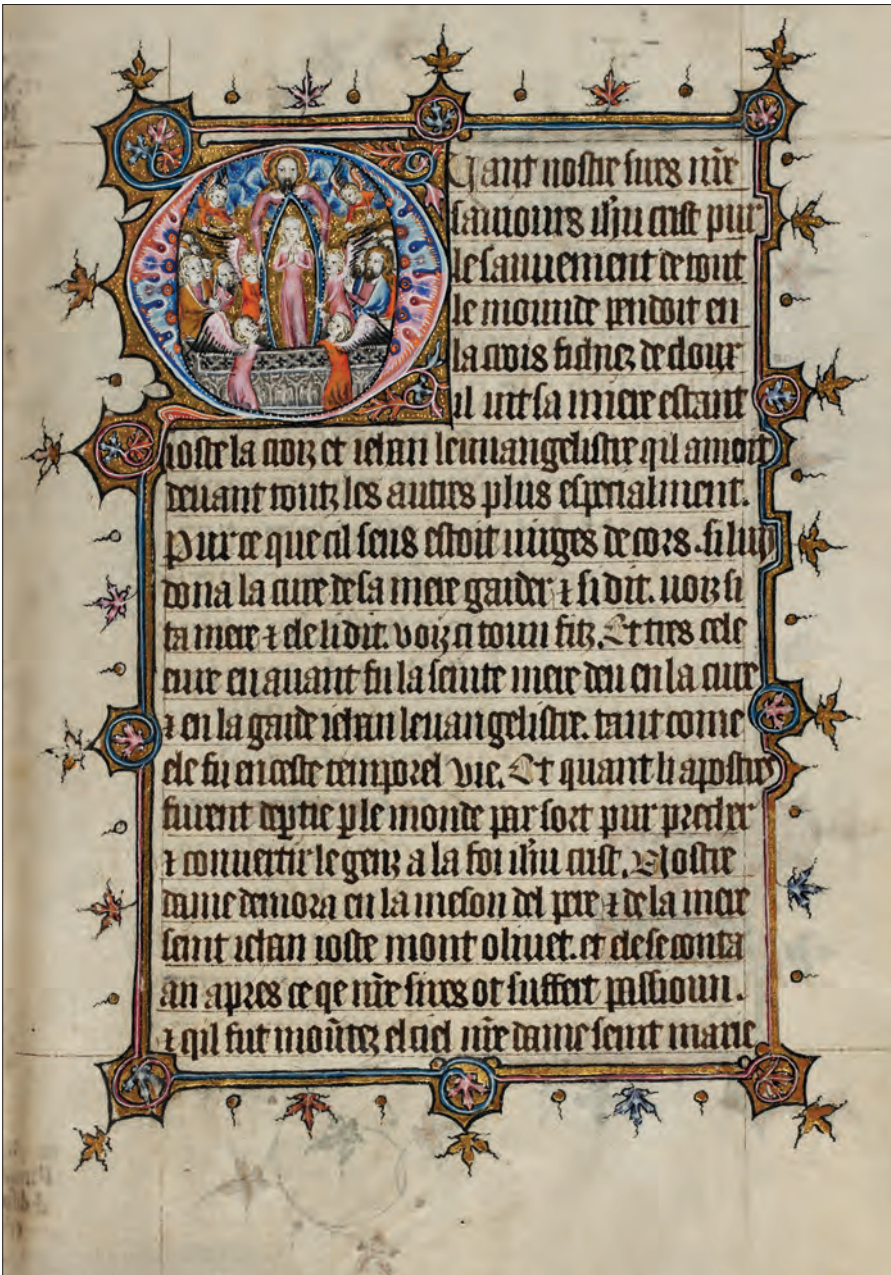 Quant nostre sires nr̃e
sauuours ihũ crist pur
le sauuement de tout
le mounde pendoit en
la crois fichiez de clour
il uit sa miere estant
ioste la croiz et iehan leeuangelistre qil amoit
deuant toutz les autres plus especialment.
Purce que cil seus estoit uirges de cors. si luy
dona la cure de sa mere garder ⁊ si dit. uoiz si
ta mere ⁊ ele li dit. voiz ci toun fitz. Et tres cele
eure en auant fu la seinte mere deu en la cure
⁊ en la garde iehan leuangelistre. tant come
ele fu en ceste temporel vie. Et quant li apostres
furent dep̲tie p̲ le monde par sort pur precher
⁊ conuertir le genz a la foi ihũ crist. Nostre
dame demora en la meson del pere ⁊ de la mere
seint iehan ioste mont oliuet. et el secont
an apres ce qe nr̃e sires ot suffert passioun.
⁊ qil fut moũtez el ciel nr̃e dame seint marie